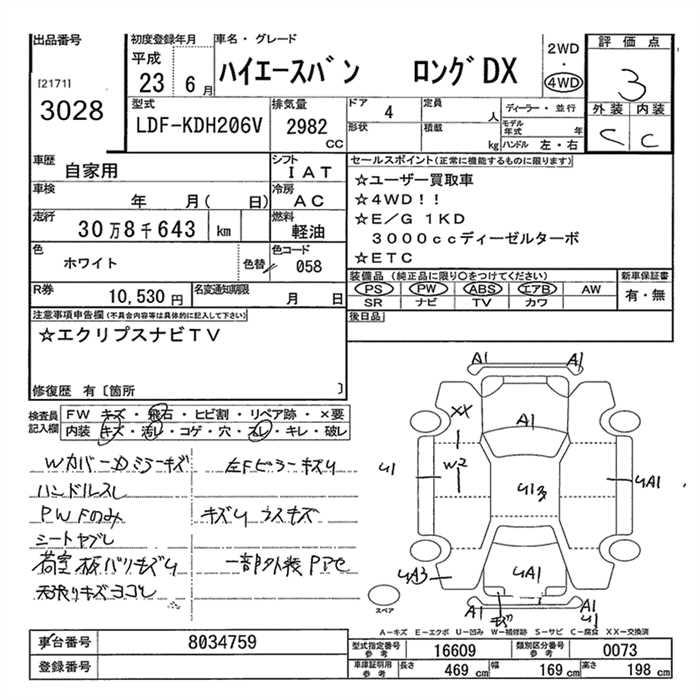 出品番号
[2171]
3028
初度登録年月
平成
23 6月
車名・グレード
ハイエースバン ロングDX
2WD
・
4WD
評価点
3
外装 内装
C C
型式
LDF-KDH206V
排気量
2982
CC
ドア 4
定員 人
形状
積載 kg
ディーラー・並行
モデル年式 年
ハンドル 左・右
車歴
自家用
シフト
IAT
車検
年 月( 日)
冷房
AC
走行
30万8千643 km
燃料
軽油
色
ホワイト
色替
色コード
058
R券
10,530円
名変通知期限
月 日
セールスポイント(正常に機能するものに限ります)
☆ユーザー買取車
☆4WD!!
☆E/G 1KD
3000ccディーゼルターボ
☆ETC
装備品(純正品に限り○をつけてください)
PS PW ABS エアB AW
SR ナビ TV カワ
新車保証書
有・無
後日品
注意事項申告欄(不具合内容等は具体的に記入して下さい)
☆エクリプスナビTV
修復歴 有〔箇所 〕
検査員
記入欄
FW キズ・飛石・ヒビ割・リペア跡・×要
内装 キズ・汚レ・コゲ・穴・スレ・キレ・破レ
Wカバー ミラーキズ
左Fピラーキズ
ハンドルスレ
PWFのみ
シートヤブレ
荷室板バリキズ
一部外装Pアセ
天張りキズヨゴレ
A1 A1
XX
A1
W2
U1
U3
UA1
UA3
UA1
A1
キズ
A1
U1
スペア
A-キズ E-エクボ U-凹み W-補修跡 S-サビ C-腐食 XX-交換済
車台番号
8034759
登録番号
型式指定番号
参考
16609
類別区分番号
参考
0073
車庫証明用
参考
長さ 469cm 幅 169cm 高さ 198cm